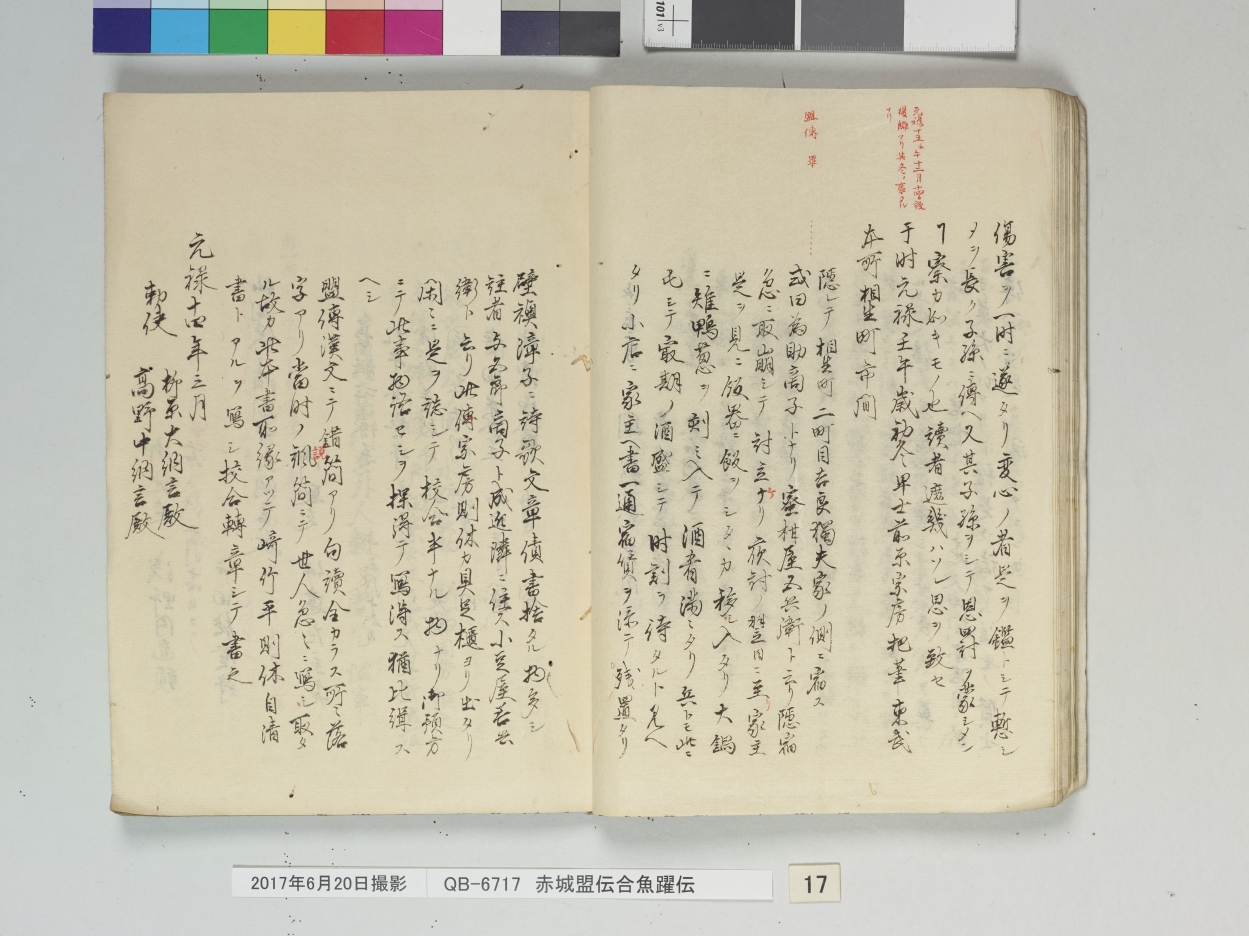 傷害ヲ一時ニ遂タリ変心ノ者是ヲ鑑トシテ慙シ
メヲ長ク子孫ニ傳ヘ又其子孫ヲシテ恩
カ如キモノ也讀者庶幾ハソレ思ヲ致セ
于時元禄壬午歳初冬卑士前原宗房把筆東武
本所相生町市間
隠レテ相生町二町目吉良獨夫家ノ側ニ宿ス
或曰為助商子トナリ蜜柑屋五兵衛ト云リ隠宿
急ニ取崩シテ討立ナリ夜討ノ翌日ニ至リ家主
是ヲ見ニ飯器ニ飯ヲシタヽカ移シ入タリ大鍋
ニ雉鴨葱ヲ刻ミ入テ酒肴満ミタリ兵トモ此ニ
モシテ最期ノ酒盛シテ時刻ヲ待タルト見ヘ
タリ小店ニ家主ヘ書一通宿債ヲ添テ残置タリ
元禄十五壬午十二月十四日夜
復讎アリ其冬ノ事タル
ナリ
盟傳 畢
壁襖障子ニ詩歌文章債書捨タル物多シ
註者与五郎商子ト成近隣ニ住ス小豆屋善兵
衛ト云リ此傳宗房則休カ具足櫃ヨリ出タリ
閑ミニ是ヲ誌シテ校合半ナル物ナリ御預方
ニテ此事物語セシヲ探得テ写得ス猶比緝ス
ヘシ
盟傳漢文ニテ錯簡アリ句讀全カラス所々落
字アリ當時ノ
説
簡ニテ世人急ミニ寫シ取タ
ル故カ此本書所縁アツテ﨑竹平則休自清
書トアルヲ寫シ校合轉章シテ書之
元禄十四年三月
柳原大納言殿
勅使
高野中納言殿
2017年6月20日撮影
QB-6717 赤城盟伝合魚躍伝
17